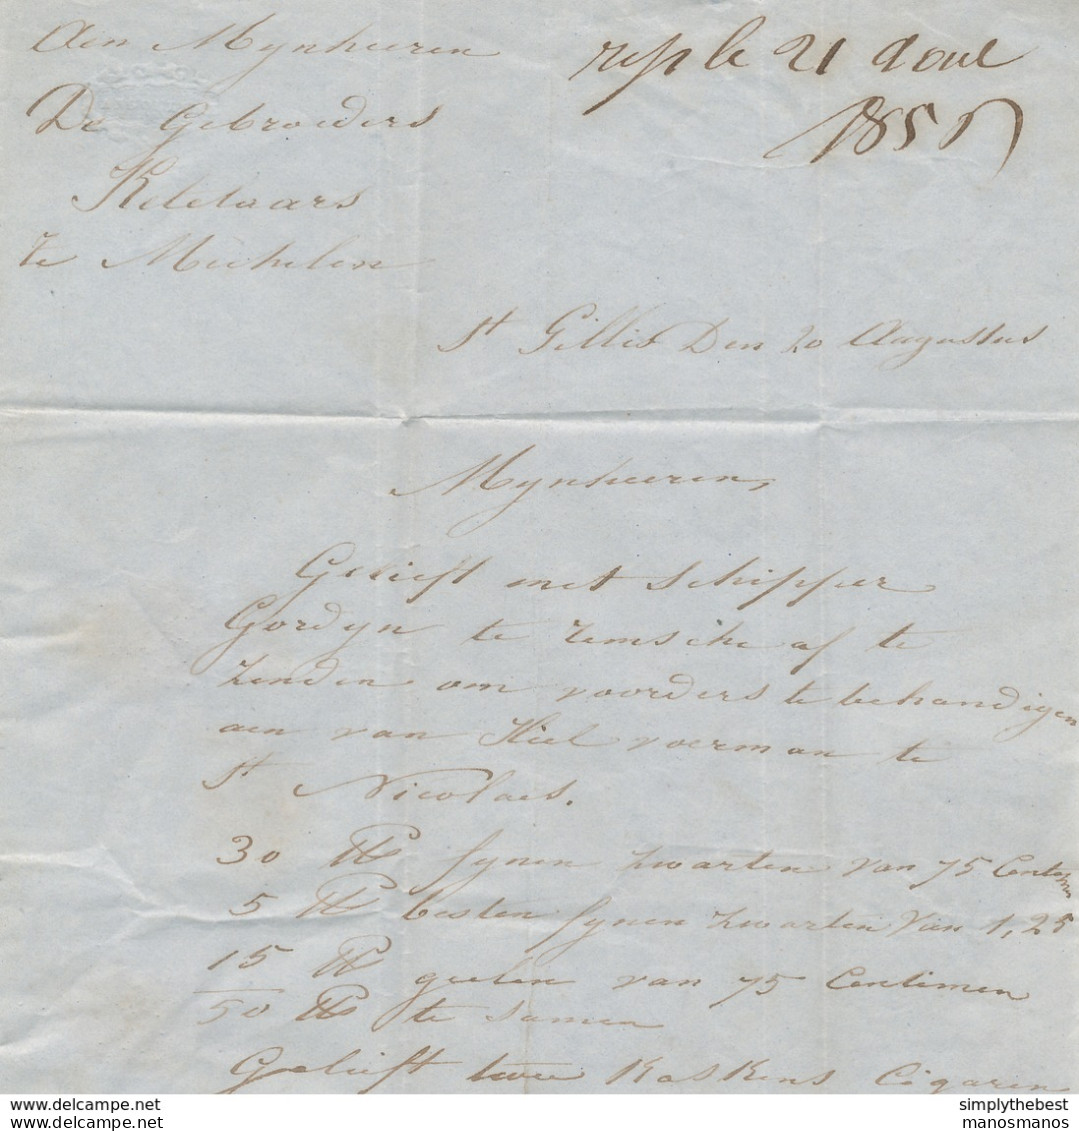 Aen Mynheeren
resp le 21 Aout
De Gebroeders
1857
Ketelaars
te Mechelen
St Gillis Den 20 Augustus
Mynheeren,
Gelieft met schipper
Gordyn te Temsche af te
zenden om voorders te behandigen
aen van Hiel voerman te
St Nicolaes.
30 lb fynen zwarten van 75 Centim
5 lb besten fynen zwarten van 1,25
15 lb geelen van 75 Centimen
50 lb te samen
Gelieft twee Kaskens Cigaren
simplythebest
manosmanos